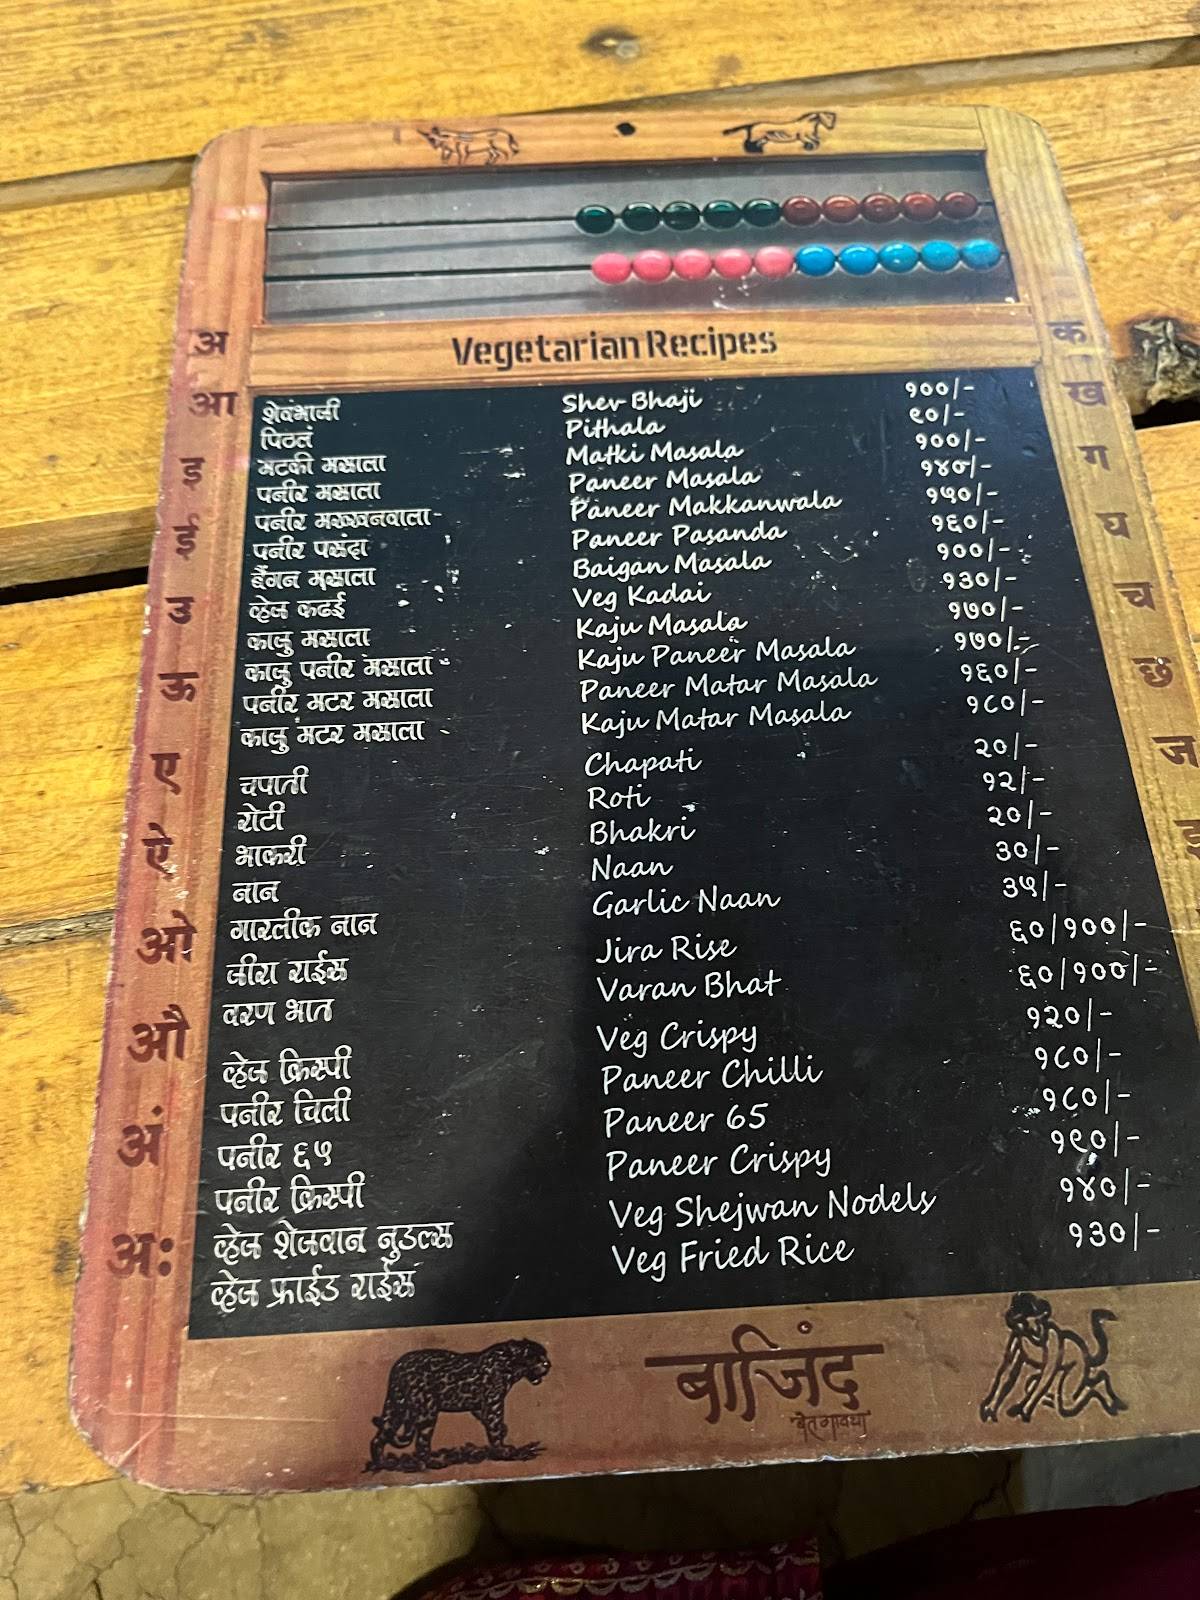 Vegetarian Recipes
अ
आ
इ
ई
उ
ऊ
ए
ऐ
ओ
औ
अं
अः
शेवभाजी Shev Bhaji १००/-
पिठलं Pithala ९०/-
मटकी मसाला Matki Masala १००/-
पनीर मसाला Paneer Masala १४०/-
पनीर मख्खनवाला Paneer Makkanwala १५०/-
पनीर पसंदा Paneer Pasanda १६०/-
बैंगन मसाला Baigan Masala १००/-
व्हेज कढई Veg Kadai १३०/-
काजु मसाला Kaju Masala १७०/-
काजु पनीर मसाला Kaju Paneer Masala १७०/-
पनीर मटर मसाला Paneer Matar Masala १६०/-
काजु मटर मसाला Kaju Matar Masala १८०/-
चपाती Chapati २०/-
रोटी Roti १२/-
भाकरी Bhakri २०/-
नान Naan ३०/-
गारलीक नान Garlic Naan ३५/-
जीरा राईस Jira Rise ६०/१००/-
वरण भात Varan Bhat ६०/१००/-
व्हेज क्रिस्पी Veg Crispy १२०/-
पनीर चिली Paneer Chilli १८०/-
पनीर ६५ Paneer 65 १८०/-
पनीर क्रिस्पी Paneer Crispy १९०/-
व्हेज शेजवान नुडल्स Veg Shejwan Nodels १४०/-
व्हेज फ्राईड राईस Veg Fried Rice १३०/-
क
ख
ग
घ
च
छ
ज
बाजिंद